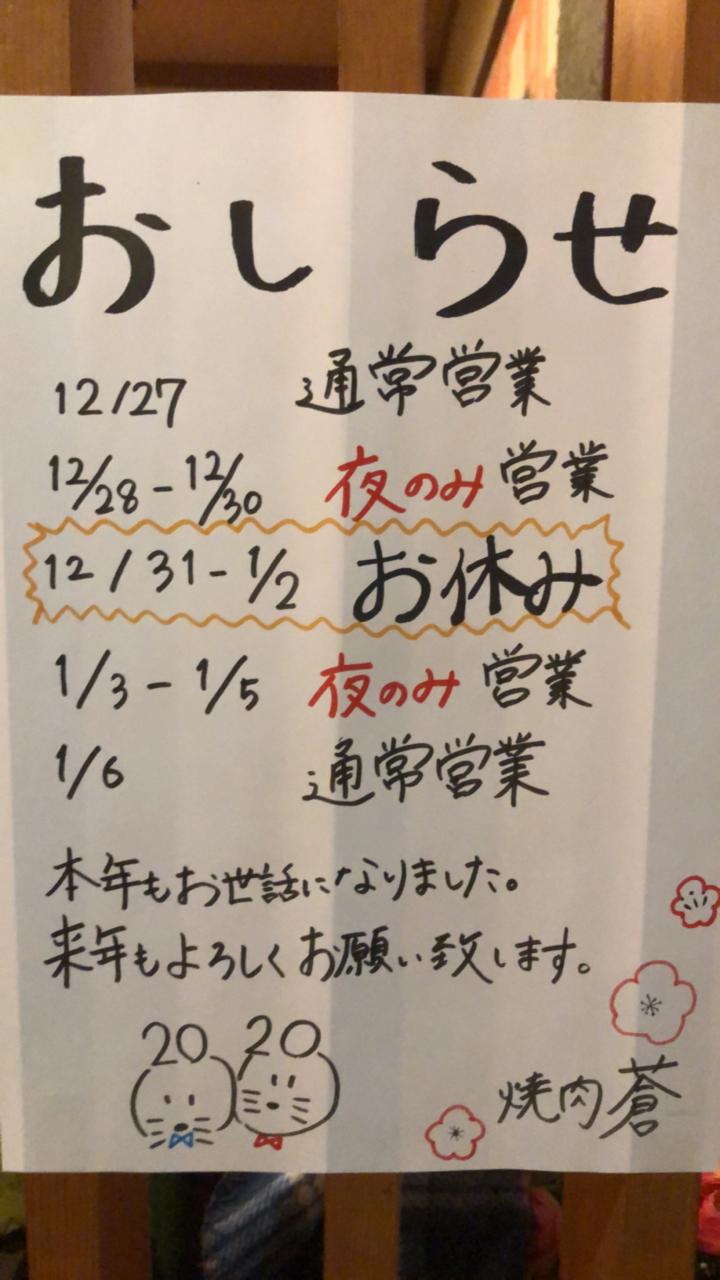 おしらせ
12/27 通常営業
12/28-12/30 夜のみ営業
12/31-1/2 お休み
1/3-1/5 夜のみ営業
1/6 通常営業
本年もお世話になりました。
来年もよろしくお願い致します。
2020
焼肉蒼